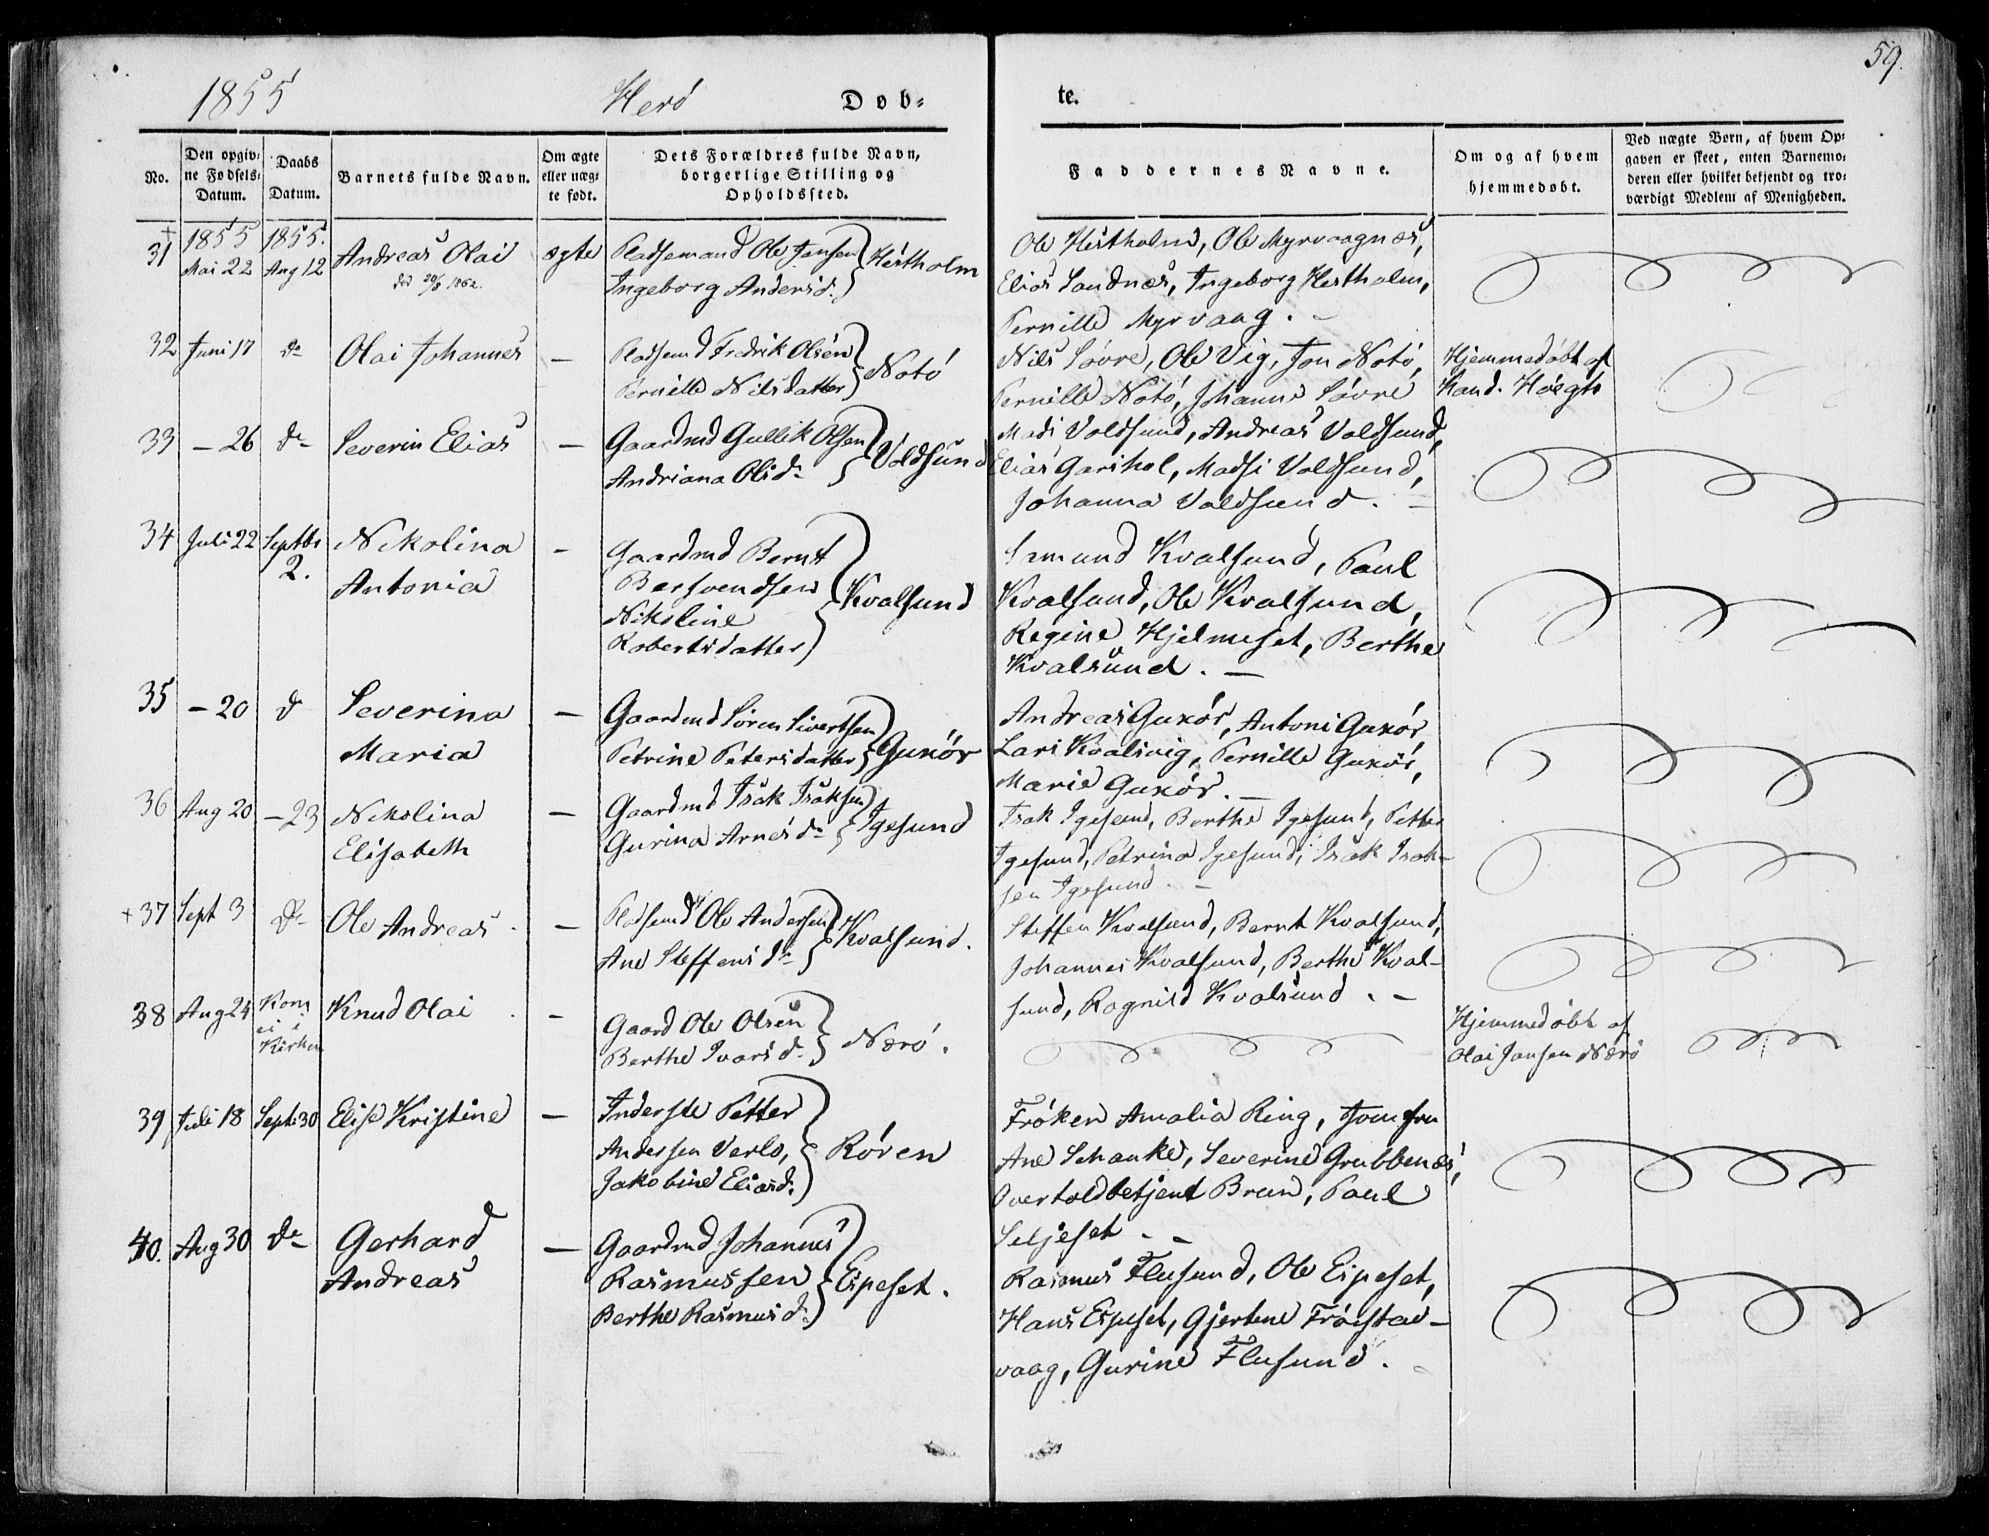 59.
1855 Herö Döb-te.
No.
Den opgivne Fødsels-Datum.
Daabs Datum.
Barnets fulde Navn.
Om ægte eller uægte født.
Dets Forældres fulde Navn, borgerlige Stilling og Opholdssted.
Faddernes Navne.
Om og af hvem hjemmedøbt.
Ved uægte Børn, af hvem Opgaven er skeet, enten Barnemoderen eller hvilket bekjendt og troværdigt Medlem af Menigheden.
31 1855 Mai 22 1855. Aug 12 Andreas Olai ægte Pladsemand Ole Jansen
Ingeborg Andersd. Hestholm
Ole Hestholm, Ole Myrvaagnæs,
Elias Sandnæs, Ingeborg Hestholm,
Pernille Myrvaag. –
32 Juni 17 do Olai Johannes – Pladsemd Fredrik Olsen
Pernille Nilsdatter Notö
Nils Sövre, Ole Vig, Jon Notö,
Pernille Notö, Johanne Sövre
Hjemmedöbt af
Kand. Höegh
33 – 26 do Severin Elias – Gaardmd Gullik Olsen
Andriana Olsd. Voldsund
Mads Voldsund, Andreas Voldsund,
Elias Garshol, Madsi Voldsund,
Johanna Voldsund. –
34 Juli 22 Septbr 2. Nikolina
Antonia – Gaardmd Bernt
Bersvendsen
Nikoline
Robertsdatter Kvalsund
Samund Kvalsund, Paul
Kvalsund, Ole Kvalsund,
Regine Hjelmeset, Berthe
Kvalsund. –
35 – 20 do Severina
Maria – Gaardmd Sören Sivertsen
Petrine Petersdatter Guxör
Andreas Guxör, Antoni Guxör,
Lars Kvalsvig, Pernille Guxör,
Marie Guxör. –
36 Aug 20 – 23 Nikolina
Elisabeth – Gaardmd Isak Isaksen
Gurina Arnesd. Igesund
Isak Igesund, Berthe Igesund, Petter
Igesund, Petrina Igesund, Isak Isak-
sen Igesund. –
+ 37 Sept 3 do Ole Andreas – Pladsemd Ole Andersen
Ane Steffensd. Kvalsund.
Steffen Kvalsund, Bernt Kvalsund,
Johannes Kvalsund, Berthe Kval-
sund, Ragnild Kvalsund. –
38 Aug 24 Kom ei i Kirken Knud Olai – Gaard Ole Olsen
Berthe Ivarsd. Nærö.
Hjemmedöbt af
Olai Jansen Nærö
39 Juli 18 Septr 30 Elise Kristine – Inderste Petter
Andersen Verlo,
Jakobine Eliasd. Rören
Fröken Amalia Ring, Jomfru
Ane Schanke, Severine Grubbenæs,
Overtoldbetjent Brun, Paul
Seljeset. –
40. Aug 30 do Gerhard
Andreas – Gaardmd Johannes
Rasmussen
Berthe Rasmusd. Espeset.
Rasmus Flusund, Ole Espeset,
Hans Espeset, Gjertine Fröistad-
vaag, Gurine Flusund. –